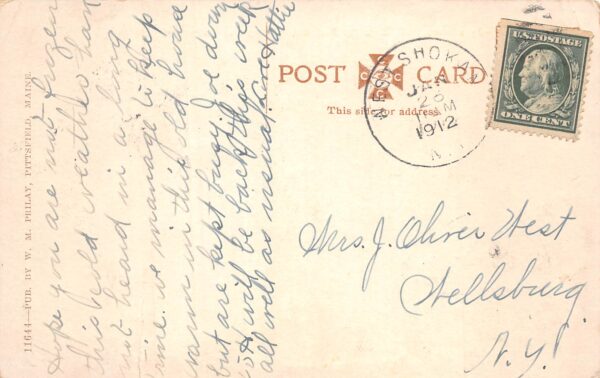 POST CARD
This side for address.
WEST SHOKAN
JAN
26
M
1912
N.Y.
U.S. POSTAGE
ONE CENT
11644—PUB. BY W. M. PRILAY, PITTSFIELD, MAINE.
Hope you are not frozen
this cold weather have
not heard in a long
time. we manage to keep
warm in this old house
but are kept busy. Joe down
will be back this week
all well as usual. Hattie
Mrs. J. Oliver West
Wellsburg
N.Y.